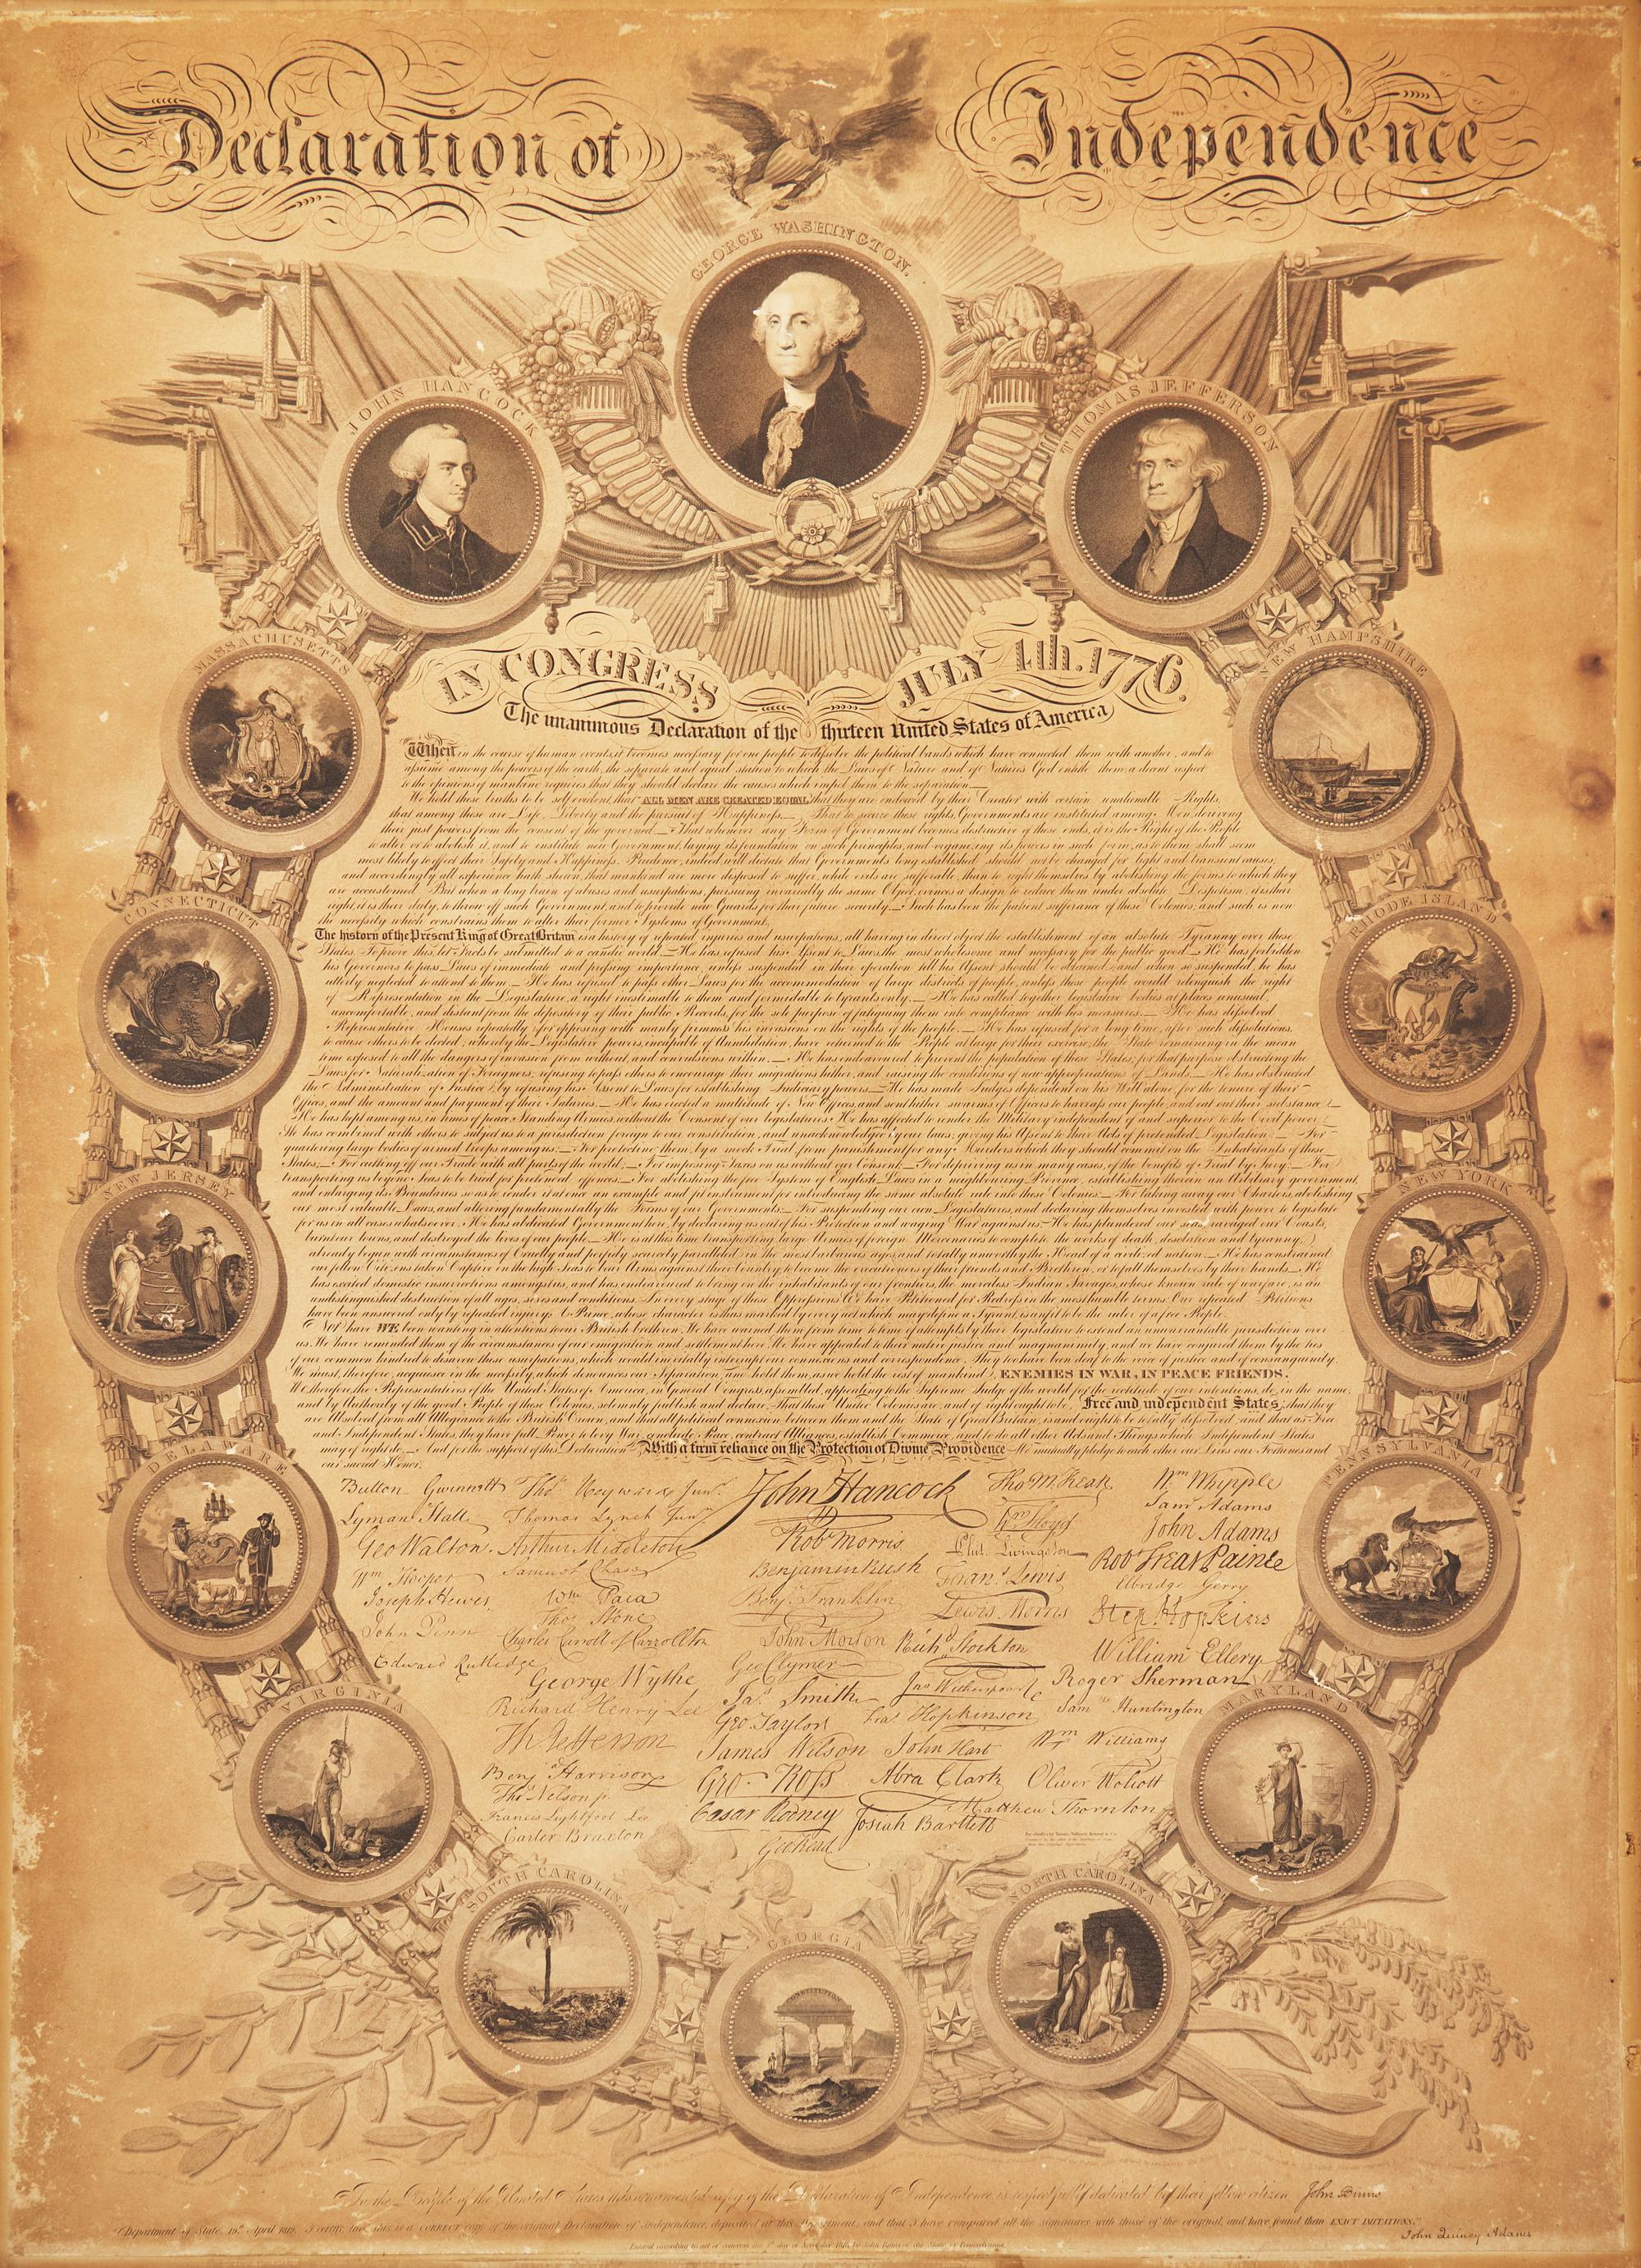 Declaration of Independence
GEORGE WASHINGTON.
JOHN HANCOCK
THOMAS JEFFERSON
IN CONGRESS JULY 4th. 1776.
The unanimous Declaration of the thirteen United States of America
MASSACHUSETTS
NEW HAMPSHIRE
When in the course of human events, it becomes necessary for one people to dissolve the political bands which have connected them with another, and to
assume among the powers of the earth, the separate and equal station to which the Laws of Nature and of Nature's God entitle them, a decent respect
to the opinions of mankind requires that they should declare the causes which impel them to the separation.
We hold these truths to be self evident, that ALL MEN ARE CREATED EQUAL, that they are endowed by their Creator with certain unalienable Rights,
that among these are Life, Liberty and the pursuit of Happiness.— That to secure these rights, Governments are instituted among Men, deriving
their just powers from the consent of the governed.— That whenever any Form of Government becomes destructive of these ends, it is the Right of the People
to alter or to abolish it, and to institute new Government, laying its foundation on such principles, and organizing its powers in such form, as to them shall seem
most likely to effect their Safety and Happiness. Prudence, indeed, will dictate that Governments long established, should not be changed for light and transient causes;
and accordingly all experience hath shewn, that mankind are more disposed to suffer, while evils are sufferable, than to right themselves by abolishing the forms to which they
are accustomed. But when a long train of abuses and usurpations, pursuing invariably the same Object, evinces a design to reduce them under absolute Despotism, it is their
right, it is their duty, to throw off such Government, and to provide new Guards for their future security.— Such has been the patient sufferance of these Colonies; and such is now
the necessity which constrains them to alter their former Systems of Government.
CONNECTICUT
RHODE ISLAND
The history of the Present King of Great Britain is a history of repeated injuries and usurpations, all having in direct object the establishment of an absolute Tyranny over these
States. To prove this, let Facts be submitted to a candid world.— He has refused his Assent to Laws, the most wholesome and necessary for the public good.— He has forbidden
his Governors to pass Laws of immediate and pressing importance, unless suspended in their operation till his Assent should be obtained; and when so suspended, he has
utterly neglected to attend to them.— He has refused to pass other Laws for the accommodation of large districts of people, unless those people would relinquish the right
of Representation in the Legislature, a right inestimable to them and formidable to tyrants only.— He has called together legislative bodies at places unusual,
uncomfortable, and distant from the depository of their public Records, for the sole purpose of fatiguing them into compliance with his measures.— He has dissolved
Representative Houses repeatedly, for opposing with manly firmness his invasions on the rights of the people.— He has refused for a long time, after such dissolutions,
to cause others to be elected; whereby the Legislative powers, incapable of Annihilation, have returned to the People at large for their exercise; the State remaining in the mean
time exposed to all the dangers of invasion from without, and convulsions within.— He has endeavoured to prevent the population of these States; for that purpose obstructing the
Laws for Naturalization of Foreigners; refusing to pass others to encourage their migrations hither, and raising the conditions of new appropriations of Lands.— He has obstructed
the Administration of Justice by refusing his Assent to Laws for establishing Judiciary powers.— He has made Judges dependent on his Will alone, for the tenure of their
Offices, and the amount and payment of their Salaries.— He has erected a multitude of New Offices, and sent hither swarms of Officers to harrass our people, and eat out their substance.—
He has kept among us, in times of peace, Standing Armies without the Consent of our legislatures. He has affected to render the Military independent of and superior to the Civil power.—
He has combined with others to subject us to a jurisdiction foreign to our constitution, and unacknowledged by our laws; giving his Assent to their Acts of pretended Legislation:— For
quartering large bodies of armed troops among us:— For protecting them, by a mock Trial from punishment for any Murders which they should commit on the Inhabitants of these
States:— For cutting off our Trade with all parts of the world:— For imposing Taxes on us without our Consent:— For depriving us in many cases, of the benefits of Trial by Jury:— For
transporting us beyond Seas to be tried for pretended offences:— For abolishing the free System of English Laws in a neighbouring Province, establishing therein an Arbitrary government,
and enlarging its Boundaries so as to render it at once an example and fit instrument for introducing the same absolute rule into these Colonies:— For taking away our Charters, abolishing
our most valuable Laws, and altering fundamentally the Forms of our Governments:— For suspending our own Legislatures, and declaring themselves invested with power to legislate
for us in all cases whatsoever.— He has abdicated Government here, by declaring us out of his Protection and waging War against us.— He has plundered our seas, ravaged our Coasts,
burnt our towns, and destroyed the lives of our people.— He is at this time transporting large Armies of foreign Mercenaries to complete the works of death, desolation and tyranny,
already begun with circumstances of Cruelty and perfidy scarcely paralleled in the most barbarous ages, and totally unworthy the Head of a civilized nation.— He has constrained
our fellow Citizens taken Captive on the high Seas to bear Arms against their Country, to become the executioners of their friends and Brethren, or to fall themselves by their hands.— He
has excited domestic insurrections amongst us, and has endeavoured to bring on the inhabitants of our frontiers, the merciless Indian Savages, whose known rule of warfare, is an
undistinguished destruction of all ages, sexes and conditions. In every stage of these Oppressions We have Petitioned for Redress in the most humble terms: Our repeated Petitions
have been answered only by repeated injury. A Prince, whose character is thus marked by every act which may define a Tyrant, is unfit to be the ruler of a free People.
NEW JERSEY
NEW YORK
Nor have WE been wanting in attentions to our British brethren. We have warned them from time to time of attempts by their legislature to extend an unwarrantable jurisdiction over
us. We have reminded them of the circumstances of our emigration and settlement here. We have appealed to their native justice and magnanimity, and we have conjured them by the ties
of our common kindred to disavow these usurpations, which would inevitably interrupt our connexions and correspondence. They too have been deaf to the voice of justice and of consanguinity.
We must, therefore, acquiesce in the necessity, which denounces our Separation, and hold them, as we hold the rest of mankind, ENEMIES IN WAR, IN PEACE FRIENDS.
We therefore, the Representatives of the United States of America, in General Congress, assembled, appealing to the Supreme Judge of the world for the rectitude of our intentions, do, in the name,
and by Authority of the good People of these Colonies, solemnly publish and declare, That these United Colonies are, and of right ought to be, Free and independent States; that they
are Absolved from all Allegiance to the British Crown, and that all political connexion between them and the State of Great Britain, is and ought to be totally dissolved; and that as Free
and Independent States, they have full Power to levy War, conclude Peace, contract Alliances, establish Commerce, and to do all other Acts and Things which Independent States
may of right do.— And for the support of this Declaration, With a firm reliance on the Protection of Divine Providence We mutually pledge to each other our Lives our Fortunes and
our sacred Honor.
DELAWARE
PENNSYLVANIA
Button Gwinnett
Lyman Hall
Geo Walton.
Wm Hooper
Joseph Hewes,
John Penn
Edward Rutledge
Thos. Heyward Junr.
Thomas Lynch Junr.
Arthur Middleton
Samuel Chase
Wm. Paca
Thos. Stone
Charles Carroll of Carrollton
George Wythe
Richard Henry Lee
Th Jefferson
Benj Harrison
Thos Nelson jr
Francis Lightfoot Lee
Carter Braxton
John Hancock
Robt Morris
Benjamin Rush
Benj. Franklin
John Morton
Geo Clymer
Jas. Smith
Geo. Taylor
James Wilson
Geo. Ross
Caesar Rodney
Geo Read
Tho M:Kean
Wm Floyd
Phil. Livingston
Frans. Lewis
Lewis Morris
Richd. Stockton
Jno Witherspoon
Fras. Hopkinson
John Hart
Abra Clark
Josiah Bartlett
Wm Whipple
Saml Adams
John Adams
Robt Treat Paine
Elbridge Gerry
Step. Hopkins
William Ellery
Roger Sherman
Sam el Huntington
Wm Williams
Oliver Wolcott
Matthew Thornton
VIRGINIA
MARYLAND
SOUTH CAROLINA
NORTH CAROLINA
GEORGIA
CONSTITUTION
To the People of the United States this ornamental copy of the Declaration of Independence is respectfully dedicated by their fellow citizen John Binns
"Department of State, 19th. April 1819. I certify, that this is a CORRECT copy of the original Declaration of Independence, deposited at this Department, and that I have compared all the signatures with those of the original, and have found them EXACT IMITATIONS."
John Quincy Adams
Entered according to act of congress the day of November 1818, by John Binns of the State of Pennsylvania.